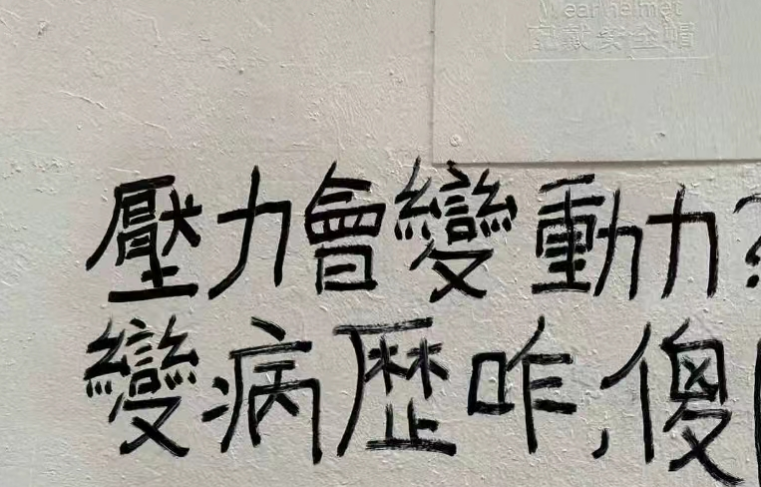 Wear helmet
戴安全帽
壓力會變動力?
變病歷咋,傻